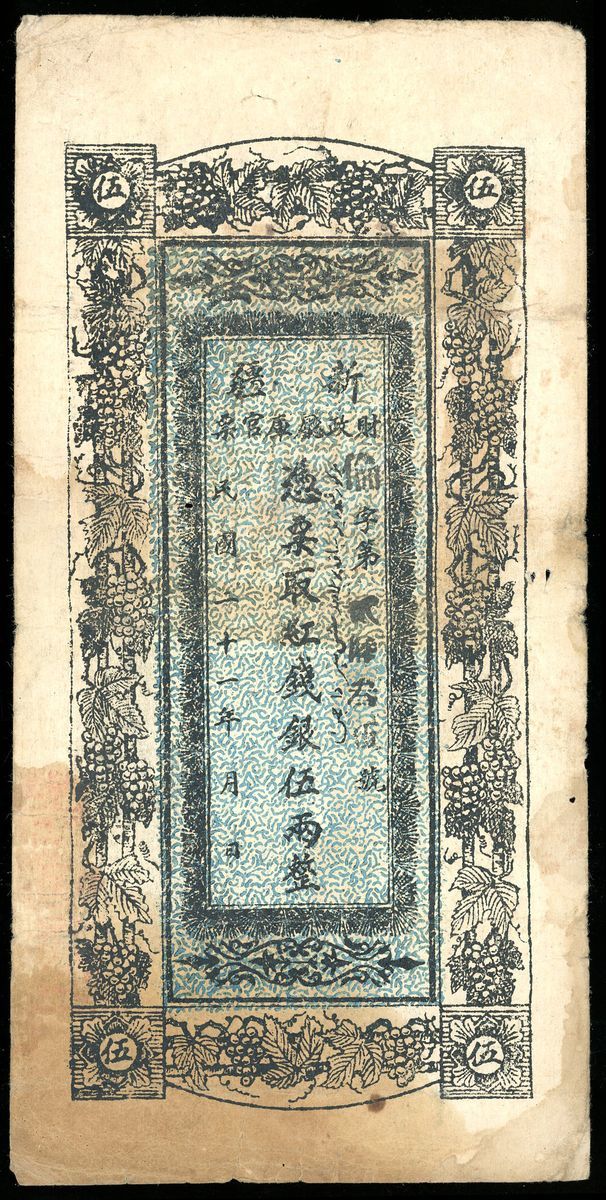 伍
伍
新疆
財政廳庫官票
字第
號
憑票取紅錢銀伍兩整
民國二十一年 月 日
伍
伍